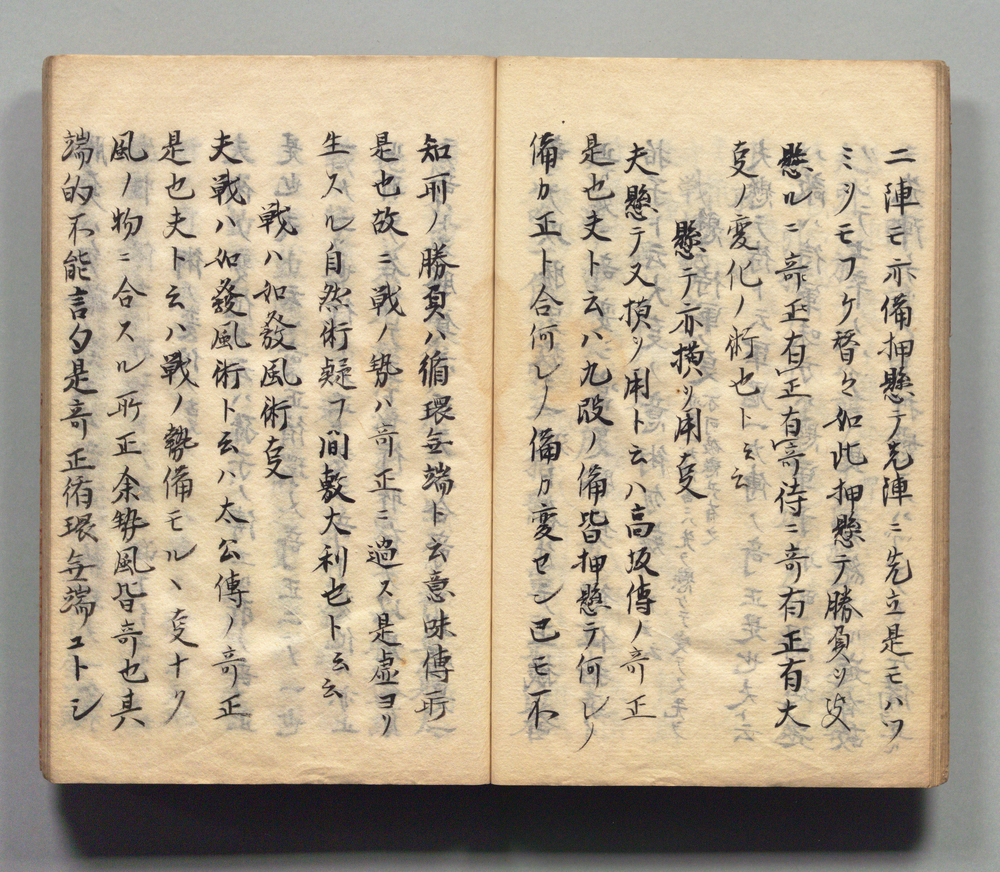 二陣モ亦備押懸テ先陣ニ先立是モハツ
ミツモフケ替々如此押懸テ勝負ヲ決
懸ルニ竒正有正有寄待ニ奇有正有大
叓ノ変化ノ術也ト云云
懸テ亦横ヲ用叓
夫懸テ又横ヲ用ト云ハ高坂傳ノ奇正
是也夫ト云ハ九段ノ備皆押懸テ何レノ
備カ正ト合何レノ備カ変センモ不
知所ノ勝負ハ循環無端ト云意味傳所
是也故ニ戦ノ勢ハ奇正ニ過ス是虚ヨリ
生スル自然術疑フ間敷大利也ト云云
戦ハ如發風術叓
夫戦ハ如發風術ト云ハ太公傳ノ奇正
是也夫ト云ハ戦ノ勢備モルヽ叓ナク
風ノ物ニ合スル所正余勢風皆奇也其
端的不能言夕是奇正循環無端コトシ